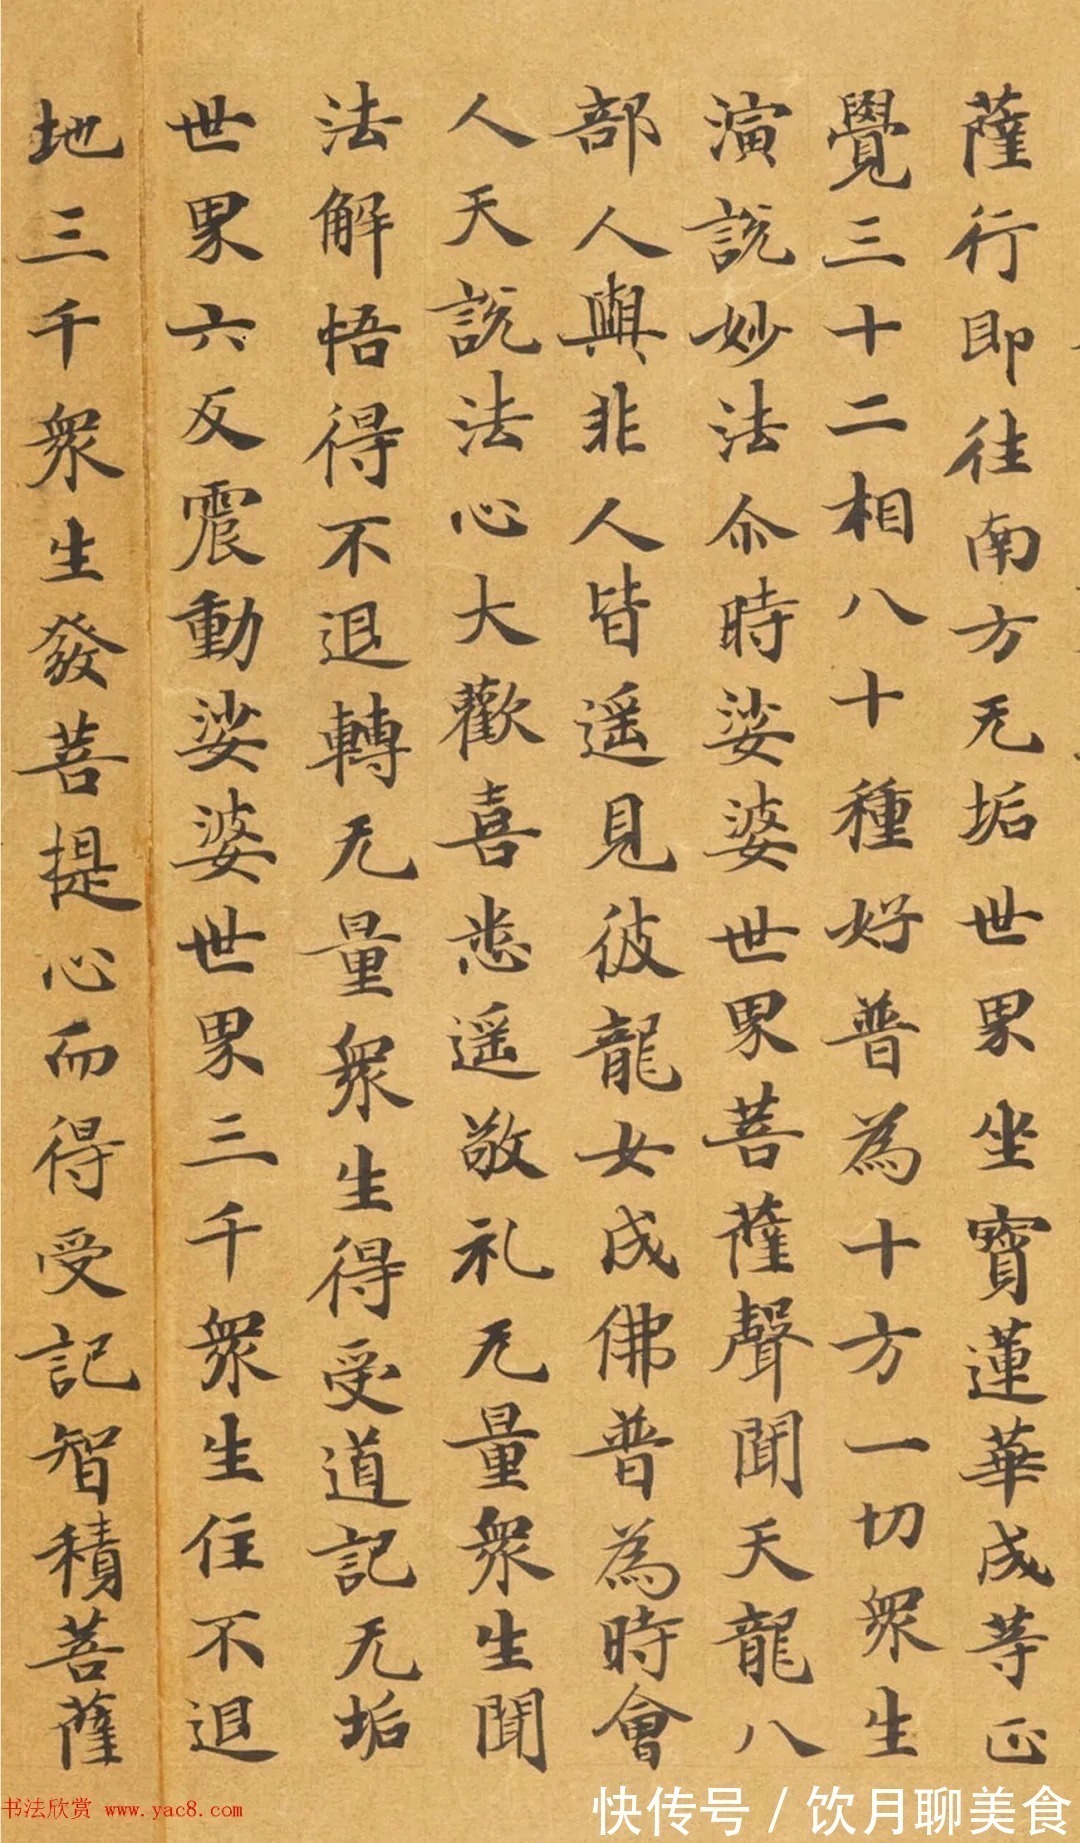 薩行即往南方无垢世界坐寶蓮華成等正
覺三十二相八十種好普為十方一切眾生
演說妙法尒時娑婆世界菩薩聲聞天龍八
部人與非人皆遥見彼龍女成佛普為時會
人天說法心大歡喜悉遥敬礼无量眾生聞
法解悟得不退轉无量眾生得受道記无垢
世界六反震動娑婆世界三千眾生住不退
地三千眾生發菩提心而得受記智積菩薩
书法欣赏 www.yac8.com
快传号/饮月聊美食